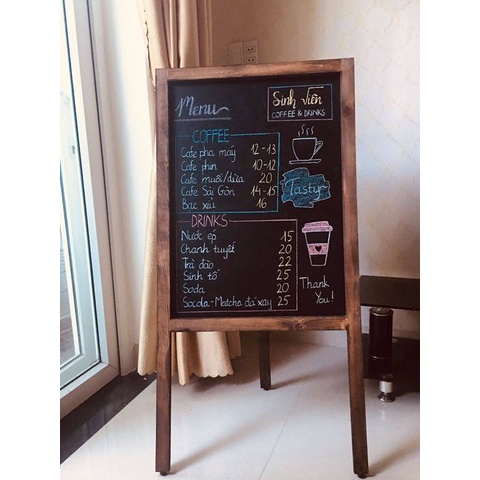 Menu
Sinh Viên
COFFEE & DRINKS
COFFEE
Cafe pha máy 12-13
Cafe phin 10-12
Cafe muối/dừa 20
Cafe Sài Gòn 14-15
Bạc xỉu 16
Tasty
DRINKS
Nước ép 15
Chanh tuyết 20
Trà đào 22
Sinh tố 25
Soda 20
Socola-Matcha đá xay 25
Thank
You!